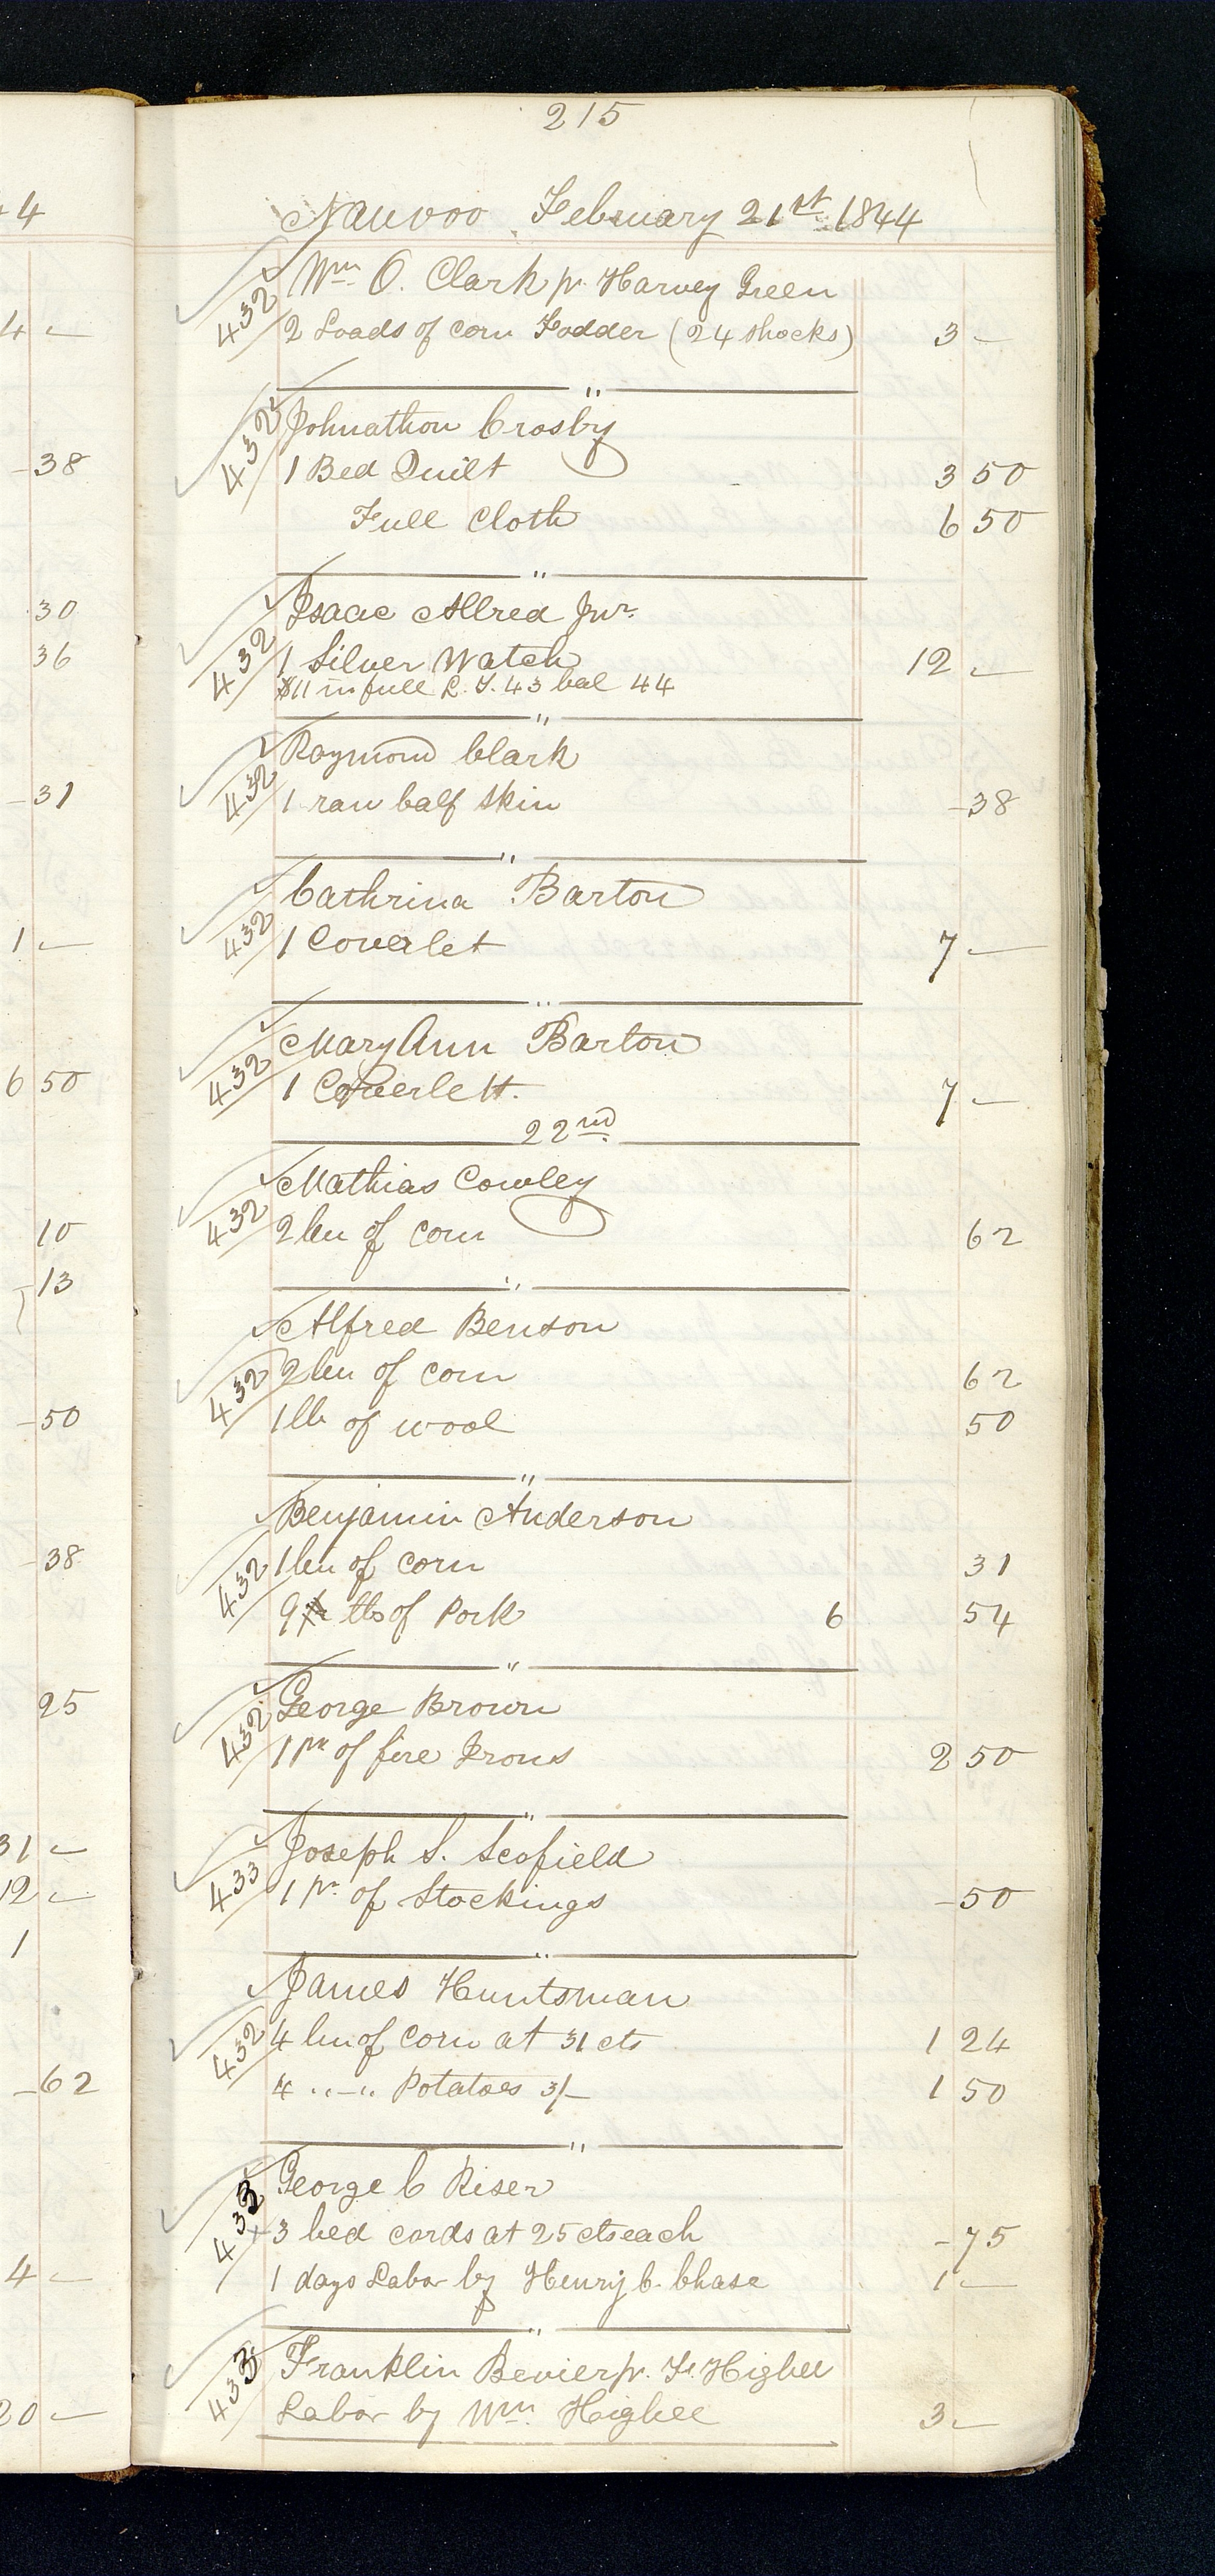 215
Nauvoo February 21st 1844
432 Wm O. Clark pr Harvey Green
2 Loads of corn Fodder (24 shocks) 3 —
"
432 Johnathon Crosby
1 Bed Quilt 3 50
Full Cloth 6 50
"
432 Isaac Allred Junr
1 Silver Watch 12 —
$11 in full 43 bal 44
"
432 Raymond Clark
1 raw Calf Skin -38
"
432 Cathrina Barton
1 Coverlet 7 —
"
432 Mary Ann Barton
1 Coverlett. 7 —
22nd
432 Mathias Cowley
2 bu of corn 62
"
432 Alfred Benson
2 bu of corn 62
1 lb of wool 50
"
432 Benjamin Anderson
1 bu of corn 31
9 lbs of Pork 6 54
"
432 George Brown
1 pr of fire Irons 2 50
"
433 Joseph S. Scofield
1 pr of Stockings -50
"
432 James Huntsman
4 bu of corn at 31 cts 1 24
4 " — " Potatoes 3/— 1 50
"
433 George C Riser
3 bed cords at 25 cts each -75
1 days Labor by Henry C. Chase 1 —
"
433 Franklin Bevier pr. Higbee
Labor by Wm Higbee 3 —
4
4 —
-38
30
36
-31
1 —
6 50
10
-13
-50
-38
25
31 —
12 —
1
-62
4 —
20 —